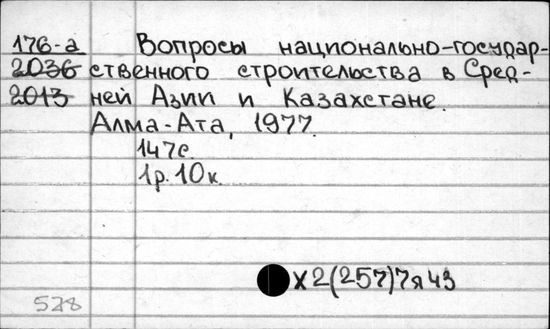 176-а Вопросы национально-государ-
2036 ственного строительства в Сред-
2013 ней Азии и Казахстане.
Алма-Ата, 1977.
147с.
1р.10к.
Х2(257)7я43
528